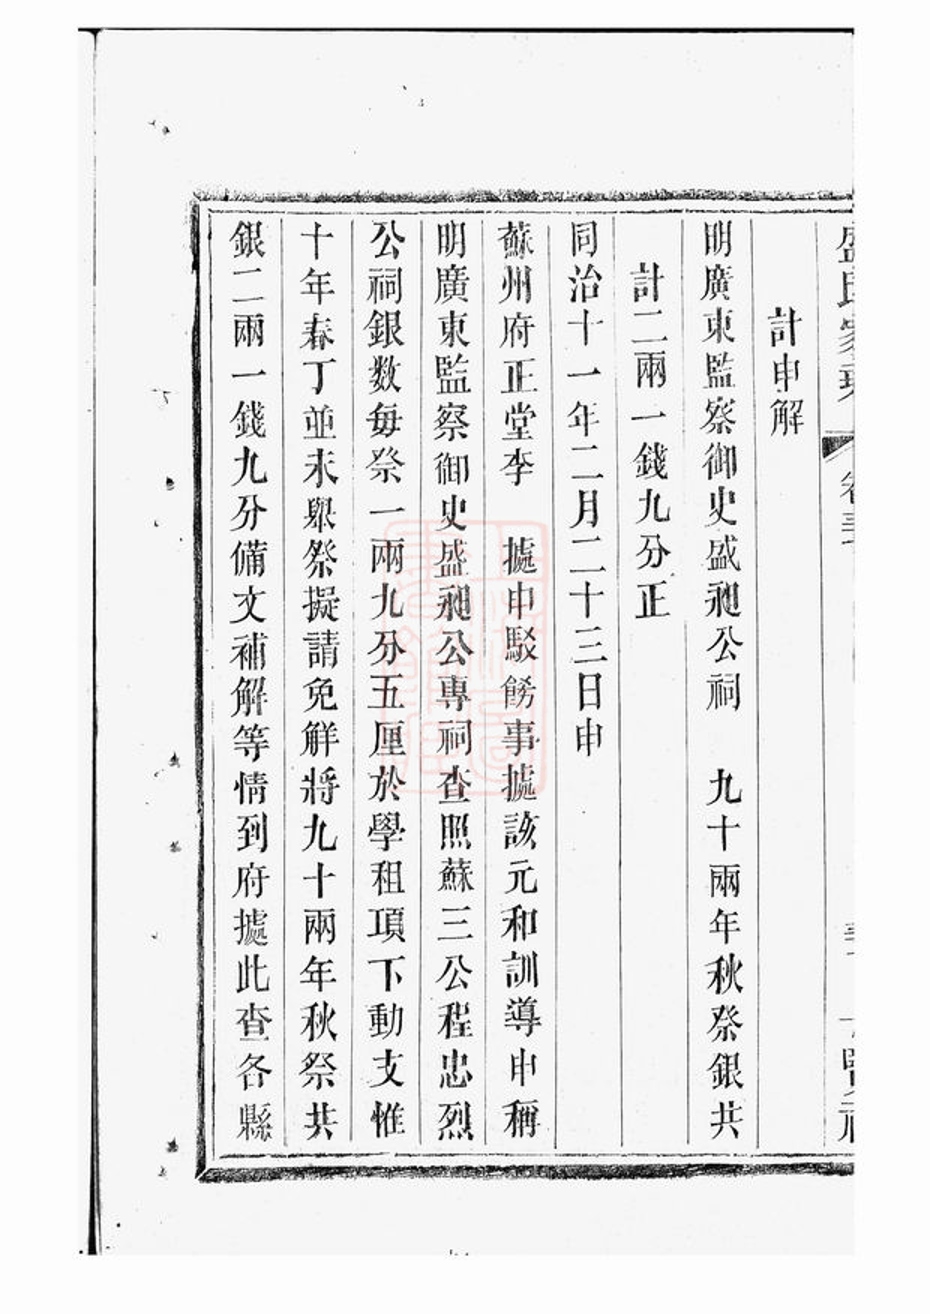 計申解
明廣東監察御史盛昶公祠　九十兩年秋祭銀共
計二兩一錢九分正
同治十一年二月二十三日申
蘇州府正堂李　據申駁餝事據該元和訓導申稱
明廣東監察御史盛昶公專祠查照蘇三公程忠烈
公祠銀数每祭一兩九分五厘於學租項下動支惟
十年春丁並未舉祭擬請免解將九十兩年秋祭共
銀二兩一錢九分備文補解等情到府據此查各縣